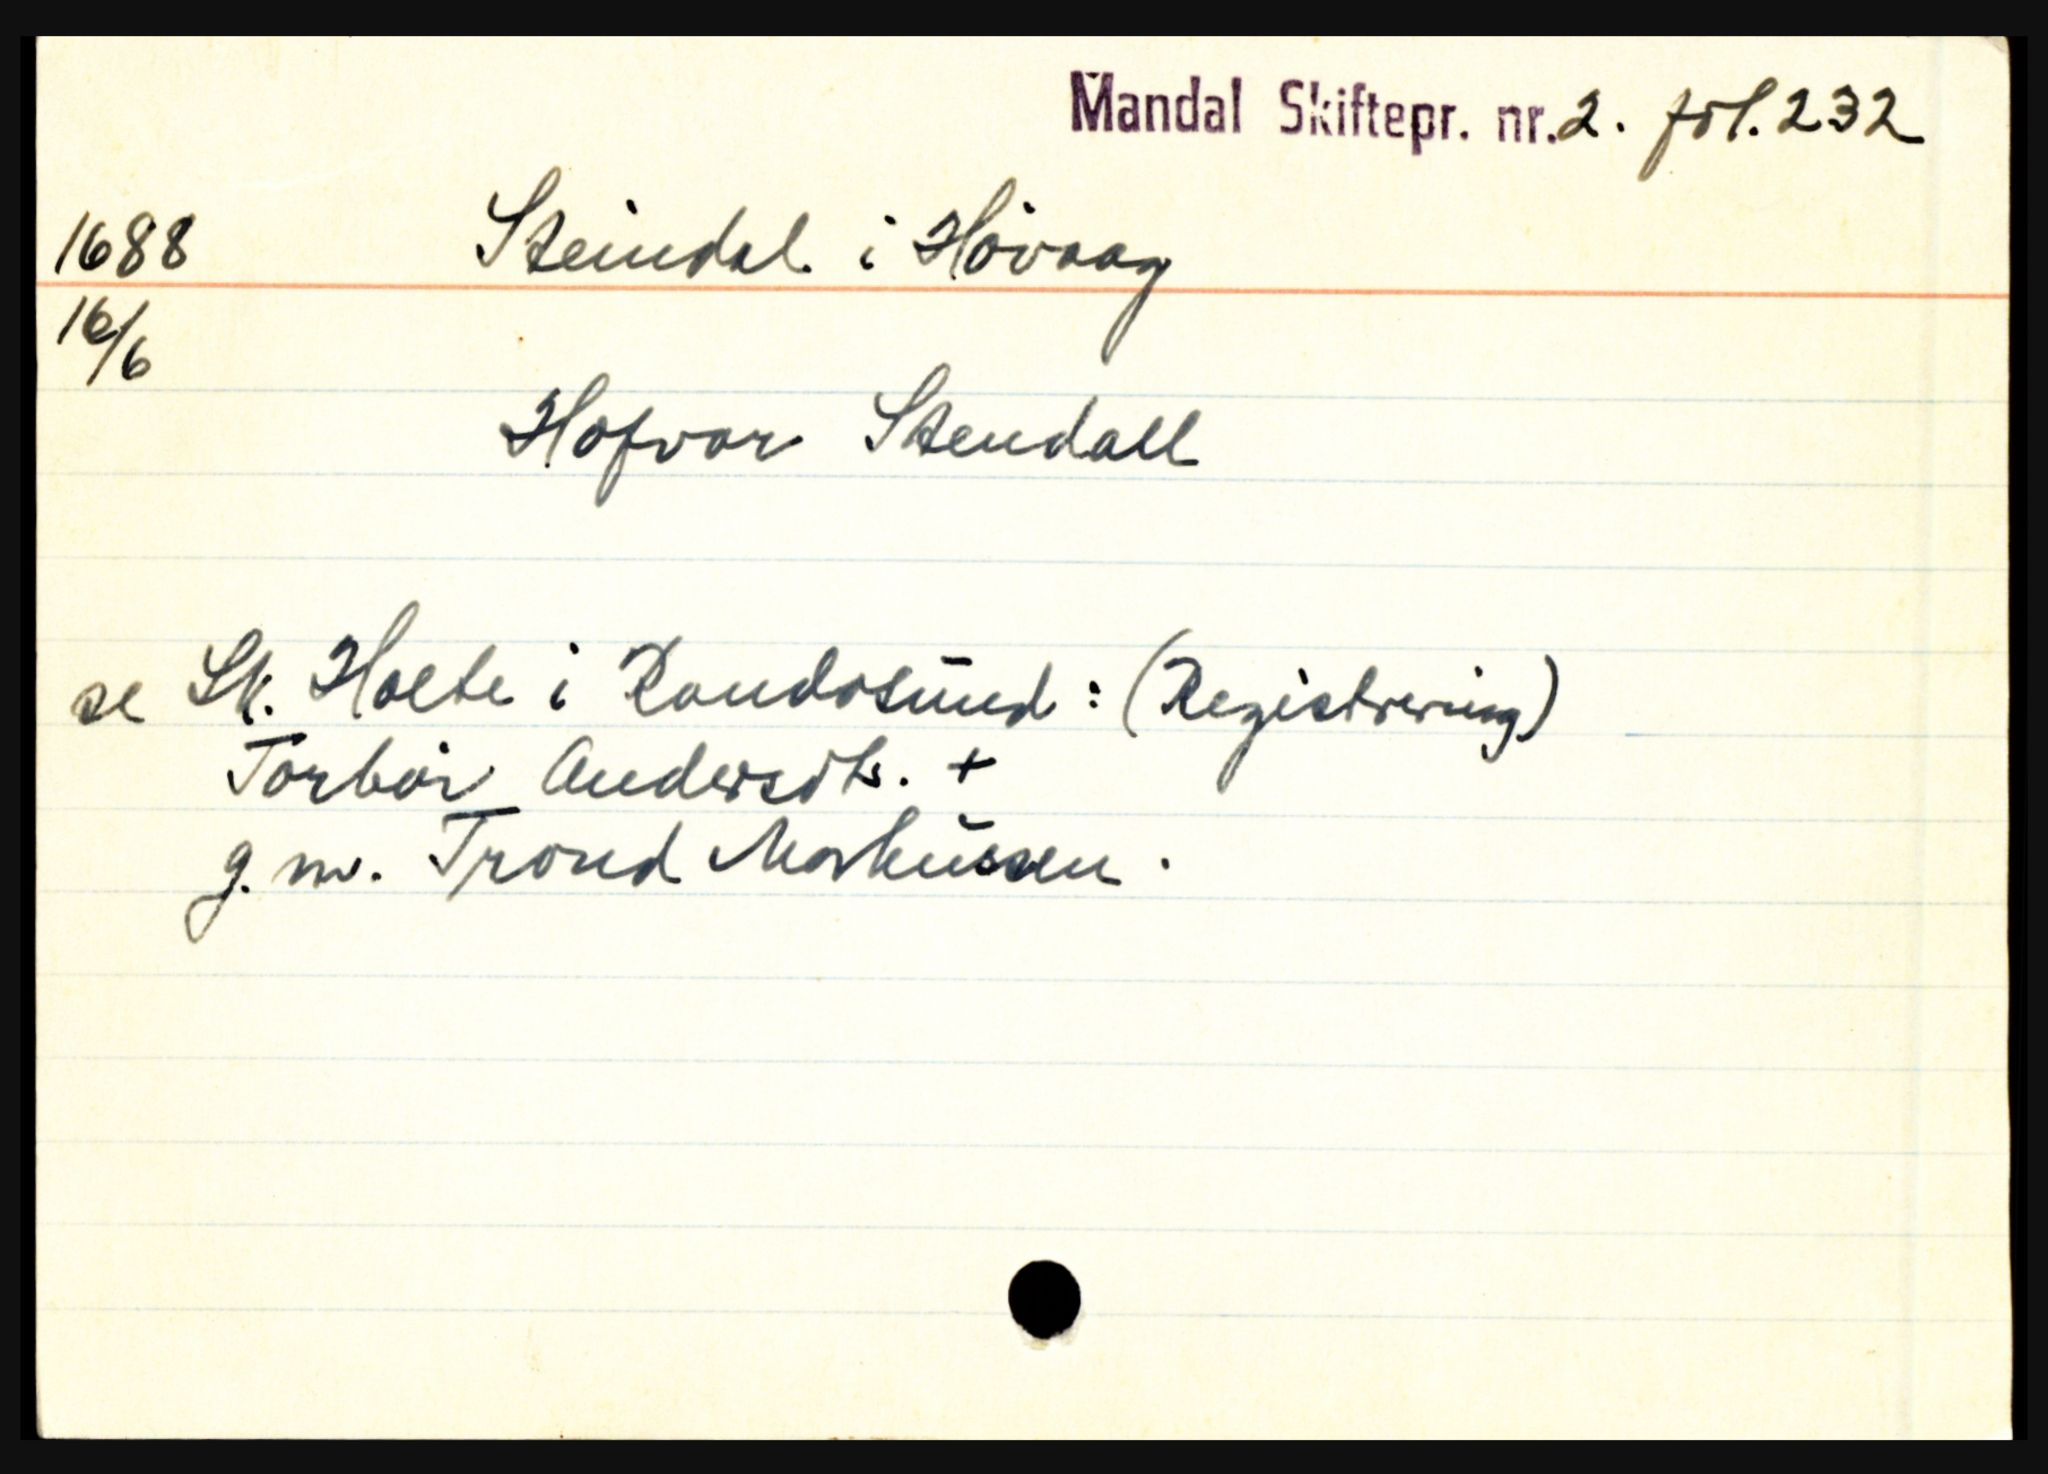 Mandal Skiftepr. nr. 2. fol. 232
1688 Steindal i Høvaag
16/6
Hofvar Stendall
se Sk. Holte i Randøsund: (Registrering)
Torbør Andersdtr. +
g. m. Trond Markussen.